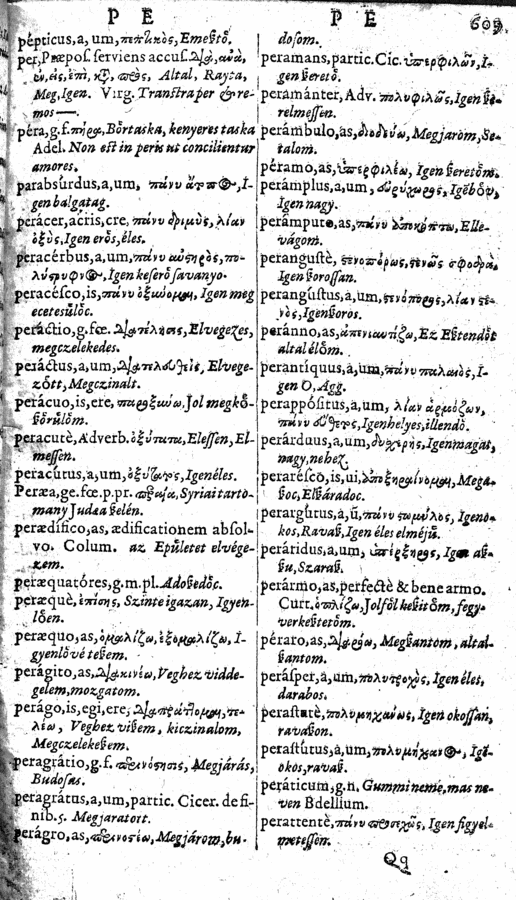 P E
pépticus,a,um,πεπτικὸς,Emeℏtȯ.
per,Præpos. serviens accus. διὰ, ἀνὰ,
ἐν,εἰς,ἐπὶ,κτ̀, πρὸς, Altal, Rayta,
Meg,Igen. Virg. Transtra per & re-
mos—.
péra,g.f.πήρα,Bőrtaska, kenyeres taska
Adel. Non est in peris ut concilientur
amores.
parabsúrdus,a,um, πάνυ ἄτοπος, I-
gen balgatag.
perácer,acris,cre, πάνυ δριμὺς, λίαν
ὀξὺς,Igen erős,éles.
peracérbus,a,um,πάνυ αὐστηρὸς,πο-
λύστυφνος,Igen keserő savanyo.
peracésco,is,πάνυ ὀξύνομαι, Igen meg
ecetesűlőc.
peráctio,g.fœ. διαπέλησις, Elvegezes,
megczelekedes.
peráctus,a,um, Elvege-
zőtt, Megczinalt.
perácuo,is,ere,παροξύνω.Jol megkő-
kőrűlőm.
peracutè,Adverb.ὀξύτατα, Elessen, El-
messen.
peracútus,a,um, Igen éles.
Peræa,ge.fœ.p.pr. Syriai tarto-
many Judæa kelén.
perædífico,as, ædificationem absol-
vo. Colum. az Epűletet elvége-
zem.
peræquatóres,g.m.pl.Adokedőc.
peræquè,ἐπίσης, Szinte igazan, Igyen-
lően.
peræquo,as,ὁμαλίζω,ἐξομαλίζω, I-
gyenlővé tekem.
perágito,as,διακινέω,Veghez vidde-
gelem,mozgatom.
perágo,is,egi,ere, διαπράττομαι,τε-
λέω, Veghez vikem, kiczinalom,
Megczelekekem.
peragrátio,g.f. Megjárás,
Budosas.
peragrátus,a,um,partic. Cicer. de fi-
nib.5. Megjaratott.
perágro,as, Megjárom,bu-
P E 609.
dosom.
peramans,partic.Cic. ὑπερφιλῶν,I-
gen keretȯ.
peramánter, Adv. πολυφιλῶς,Igen ke-
relmessen.
perámbulo,as,διοδεύω, Megjarom,Se-
talom.
péramo,as,ὑπερφιλέω, Igen keretȯm.
perámplus,a,um, εὐρύχωρος, Igẽ bȯu,
Igen nagy.
perámputo,as,πάνυ ἀποκόπτω, Elle-
vágom.
perangustè, στενοπόρως,στενῶς σφοδρα.
Igen korossan.
perangústus,a,um,στενόπορος,λίαν στε-
νὸς,Igen koros.
peránno,as,ἀπενιαυτίζω,Ez Ektendőt
altal élȯm.
perantíquus,a,um,πάνυ παλαιὸς,I-
gen O, Agg.
perappósitus,a,um, λίαν ἁρμόζων,
πάνυ εὔθετος,Igen helyes,illendȯ.
perárduus,a,um,δυχερὴς,Igen magat,
nagy,nehez.
perarésco,is,ui,ἀποξηραίνομαι, Mega-
koc,Elkáradoc.
perargútus,a,ũ,πάνυ στωμύλος, Igen o-
kos,Ravak,Igen éles elméjű.
perátidus,a,um, ὑπέρξηρος, Igen ak-
ku,Szarak.
perármo,as,perfectè & bene armo.
Curt.ὁπλίζω,Jol fȯl kekitȯm, fegy-
verkektetȯm.
péraro,as,διαρόω, Megkantom, altal-
kantom.
perásper,a,um,πολυτροχὺς,Igen élet,
darabos.
perastutè,πολυμηχάνως, Igen okossan,
ravakon.
perastútus,a,um,πολυμήχανος, Igē
okos,ravak.
peráticum,g.n. Gummi neme, mas ne-
ven Bdellium.
perattentè,πάνυ προσεχῶς, Igen figyel-
metessen.
Qq